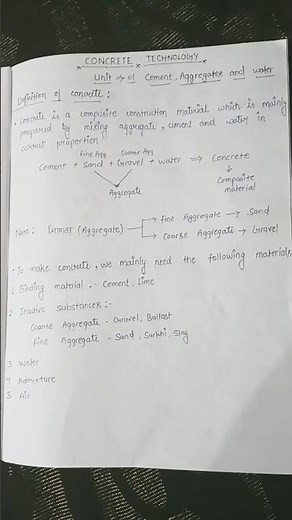 CONCRETE × TECHNOLOGY
Unit ⇒ 01 Cement, Aggregates and water
Definition of concrete :
• Concrete is a composite construction material which is mainly
prepared by mixing aggregate, cement and water in
correct proportion
Fine Agg Coarse Agg
Cement + Sand + Gravel + water ⇒ Concrete
↓
Aggregate
Composite
material
Note : (Aggregate) → Fine Aggregate → Sand
→ Coarse Aggregate → Gravel
• To make concrete, we mainly need the following materials
1 Binding material :- Cement, Lime
2 Inactive substances :-
Coarse Aggregate - Gravel, Ballast
Fine Aggregate - Sand, Surkhi, Slag
3 Water
4 Admixture
5 Air